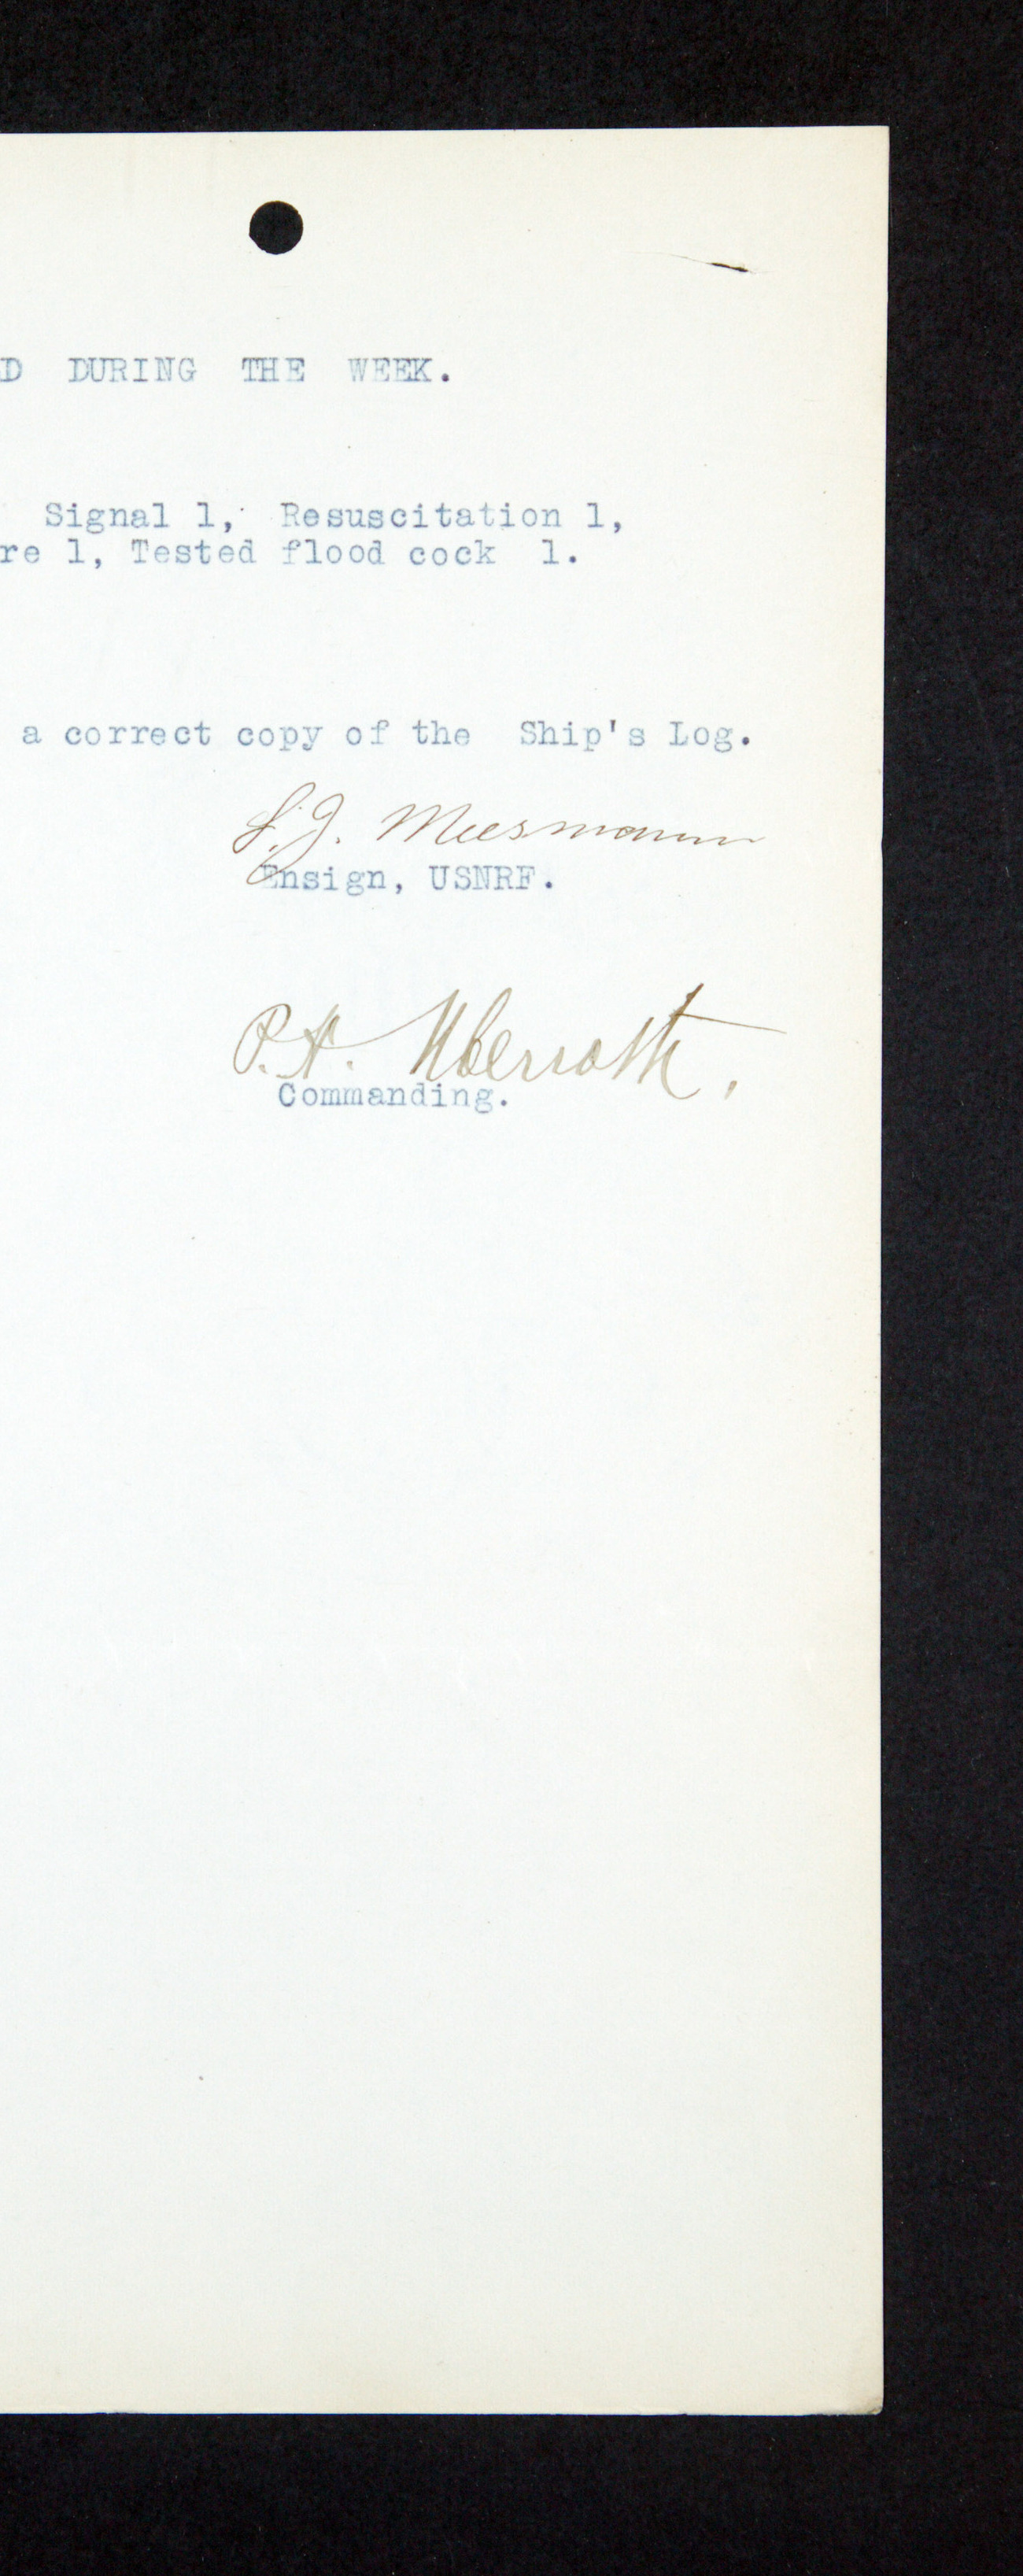 D DURING THE WEEK.
Signal 1, Resuscitation 1,
re 1, Tested flood cock 1.
a correct copy of the Ship's Log.
Meesmann
Ensign, USNRF.
P.H. Uberroth,
Commanding.